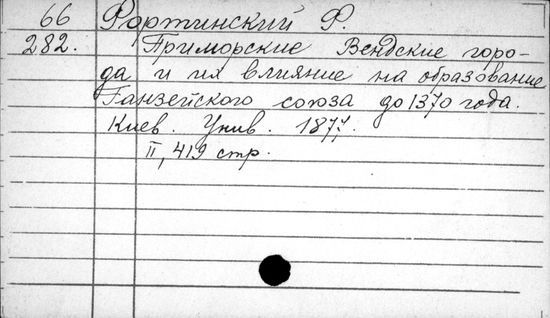 66 Фортинский Ф.
282. Приморские Вендские горо-
да и их влияние на образование
Ганзейского союза до 1370 года.
Киев. Унив. 1877.
II, 419 стр.